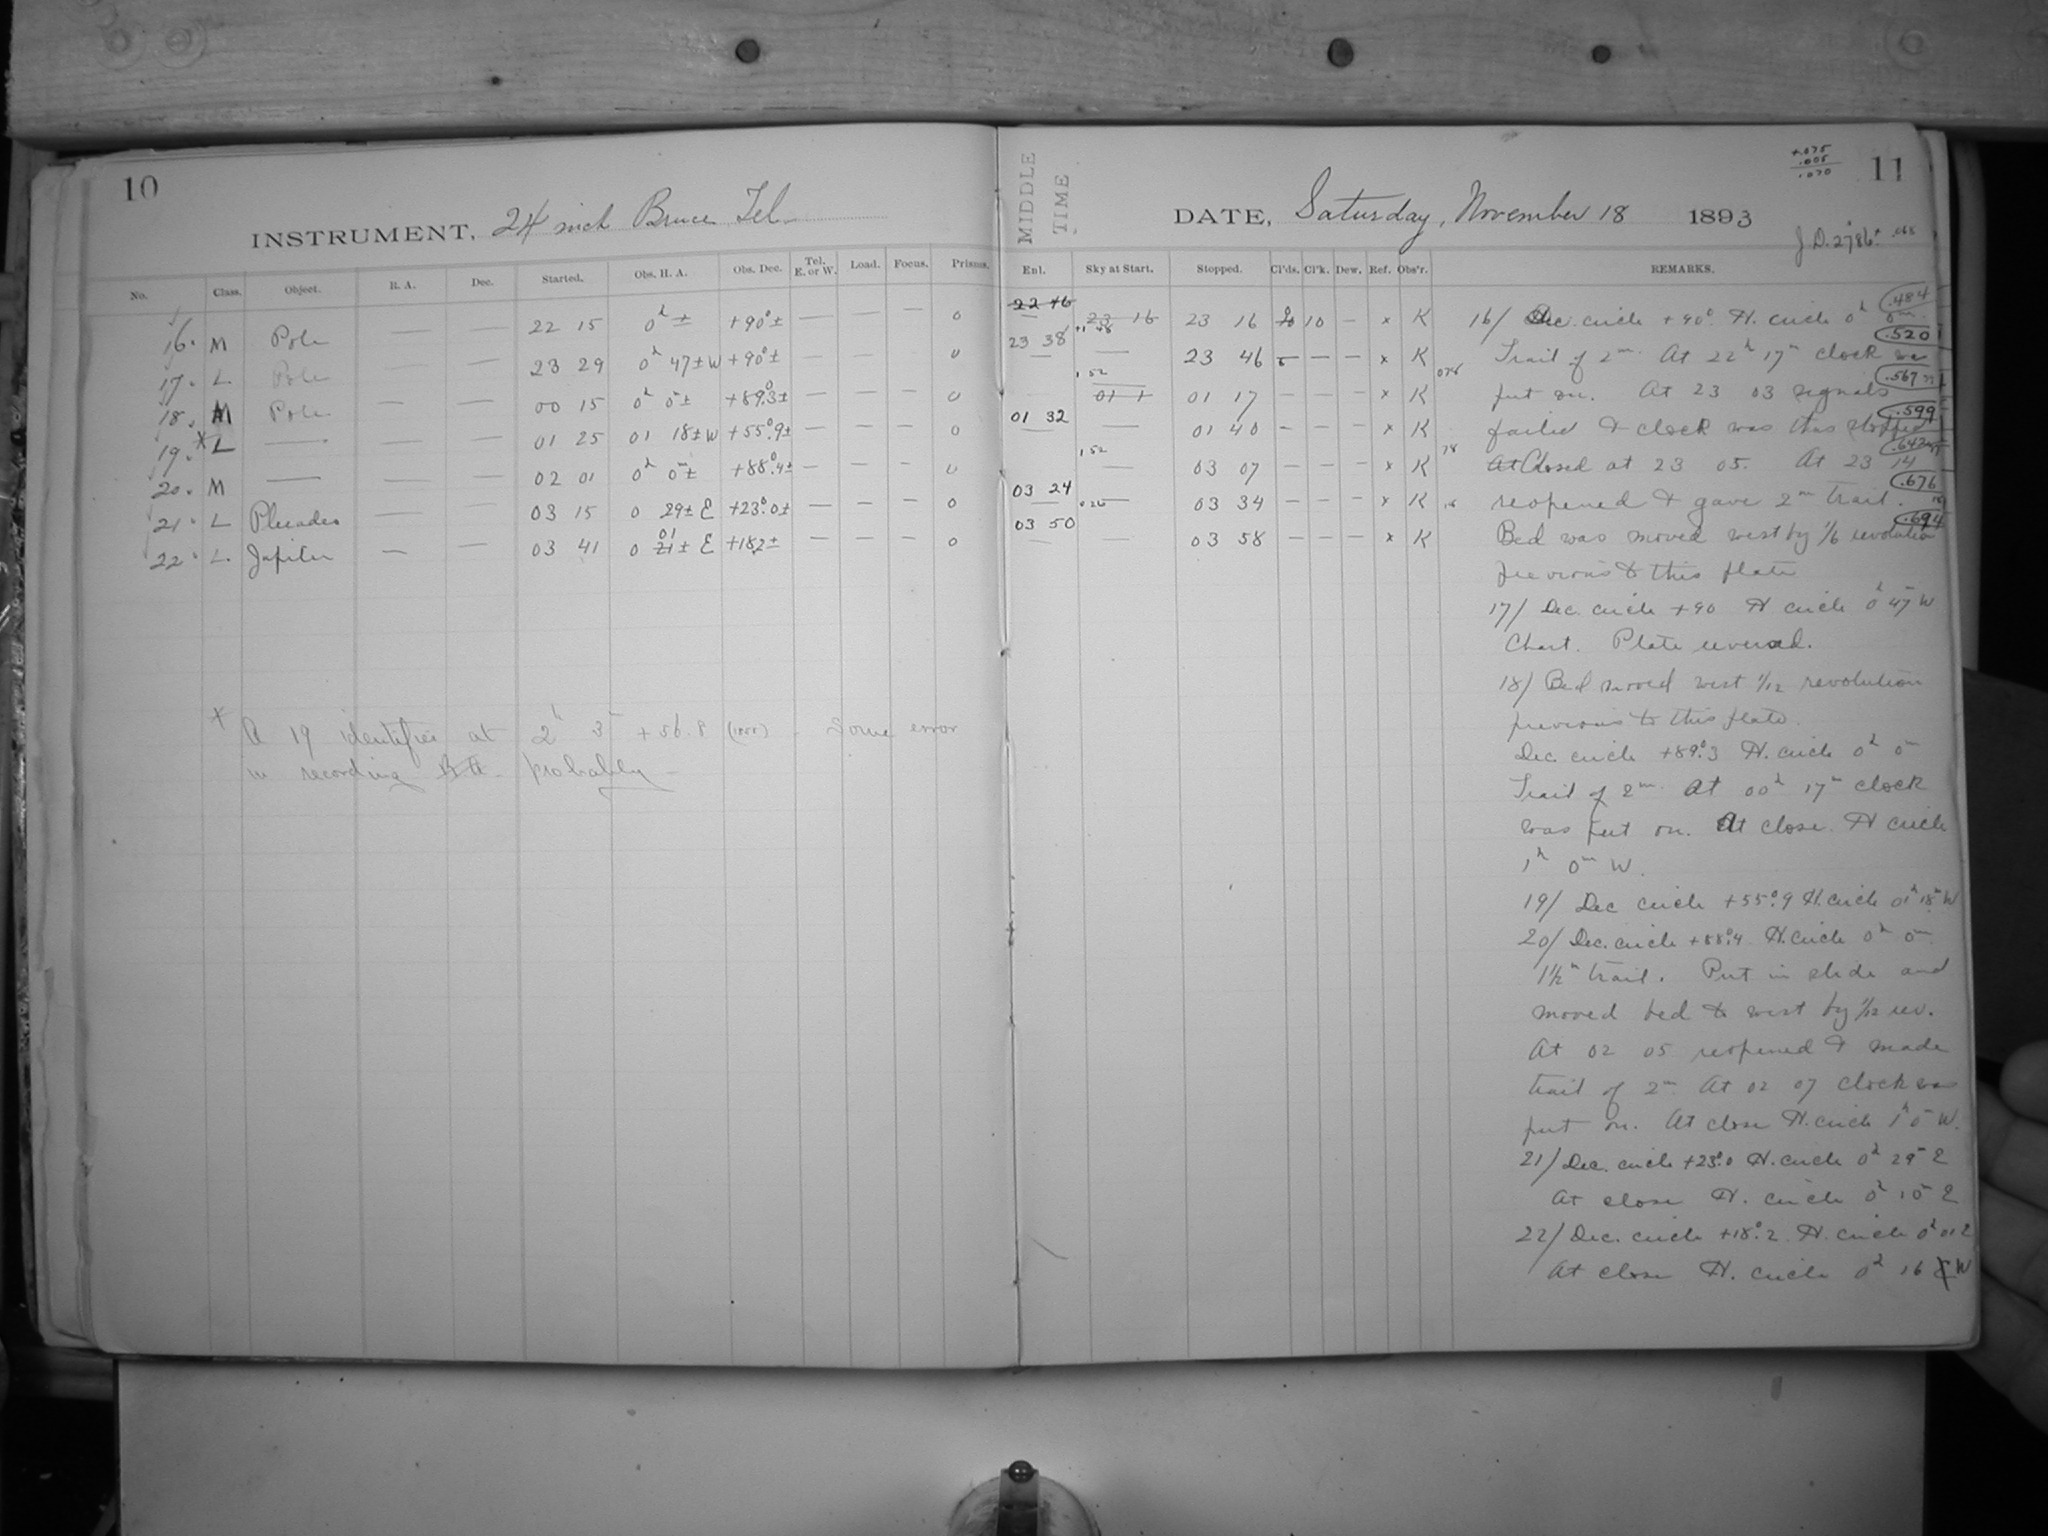 10
INSTRUMENT, 24 inch Bruce Tel.
No. Class. Object. R. A. Dec. Started. Obs. H. A. Obs. Dec. Tel. E. or W. Load. Focus. Prisms.
16. M Pole — — 22 15 0h ± +90° ± — — — 0
17. L Pole — — 23 29 0h 47 ± W +90° ± — — — 0
18. M Pole — — 00 15 0h 0 ± +89°.3 ± — — — 0
19. * L — — — 01 25 01 18 ± W +55°.9 ± — — — 0
20. M — — — 02 01 0h 0m ± +88°.4 ± — — — 0
21. L Pleiades — — 03 15 0 29 ± E +23°.0 ± — — — 0
22. L. Jupiter — — 03 41 0 01 ± E +18.2 ± — — — 0
* A 19 identifies at 2h 3m +56.8 . Some error
in recording probably
MIDDLE TIME
DATE, Saturday, November 18 1893
11
+.075
.005
.070
J.D. 2786+
Enl. Sky at Start. Stopped. Cl'ds. Cl'k. Dew. Ref. Obs'r. REMARKS.
22 46 23 16 23 16 10 — x K
23 38 — 23 46 — — x K
01 17 — — — x K
01 32 — 01 40 — — — x K
1.52 — 03 07 — — — x K
03 24 — 03 34 — — — x K
03 50 — 03 58 — — — x K
.484
.520
.567
.599
.642
.676
.694
16/ Dec. circle +90° H. circle 0h 0m
Trail of 2m. At 22h 17m clock was
put on. At 23 03 signals
failed & clock was thus stopped
Closed at 23 05. At 23 14
reopened & gave 2m trail.
Bed was moved west by 1/6 revolution
previous to this plate
17/ Dec. circle +90 H circle 0h 47m W
Chart. Plate reversed.
18/ Bed moved west 1/12 revolution
previous to this plate.
Dec circle +89°.3 H. circle 0h 0m
Trail of 2m. At 00h 17m clock
was put on. At close H circle
1h 0m W.
19/ Dec circle +55°.9 H. circle 01h 18m W
20/ Dec. circle +88°.4 H. circle 0h 0m
1½m trail. Put in slide and
moved bed to west by 1/12 rev.
At 02 05 reopened & made
trail of 2m At 02 07 clock was
put on. At close H. circle 1h 0m W.
21/ Dec. circle +23°.0 H. circle 0h 29m E
At close H. circle 0h 10m E
22/ Dec. circle +18°.2 H. circle 0h 01 E
At close H. circle 0h 16 W